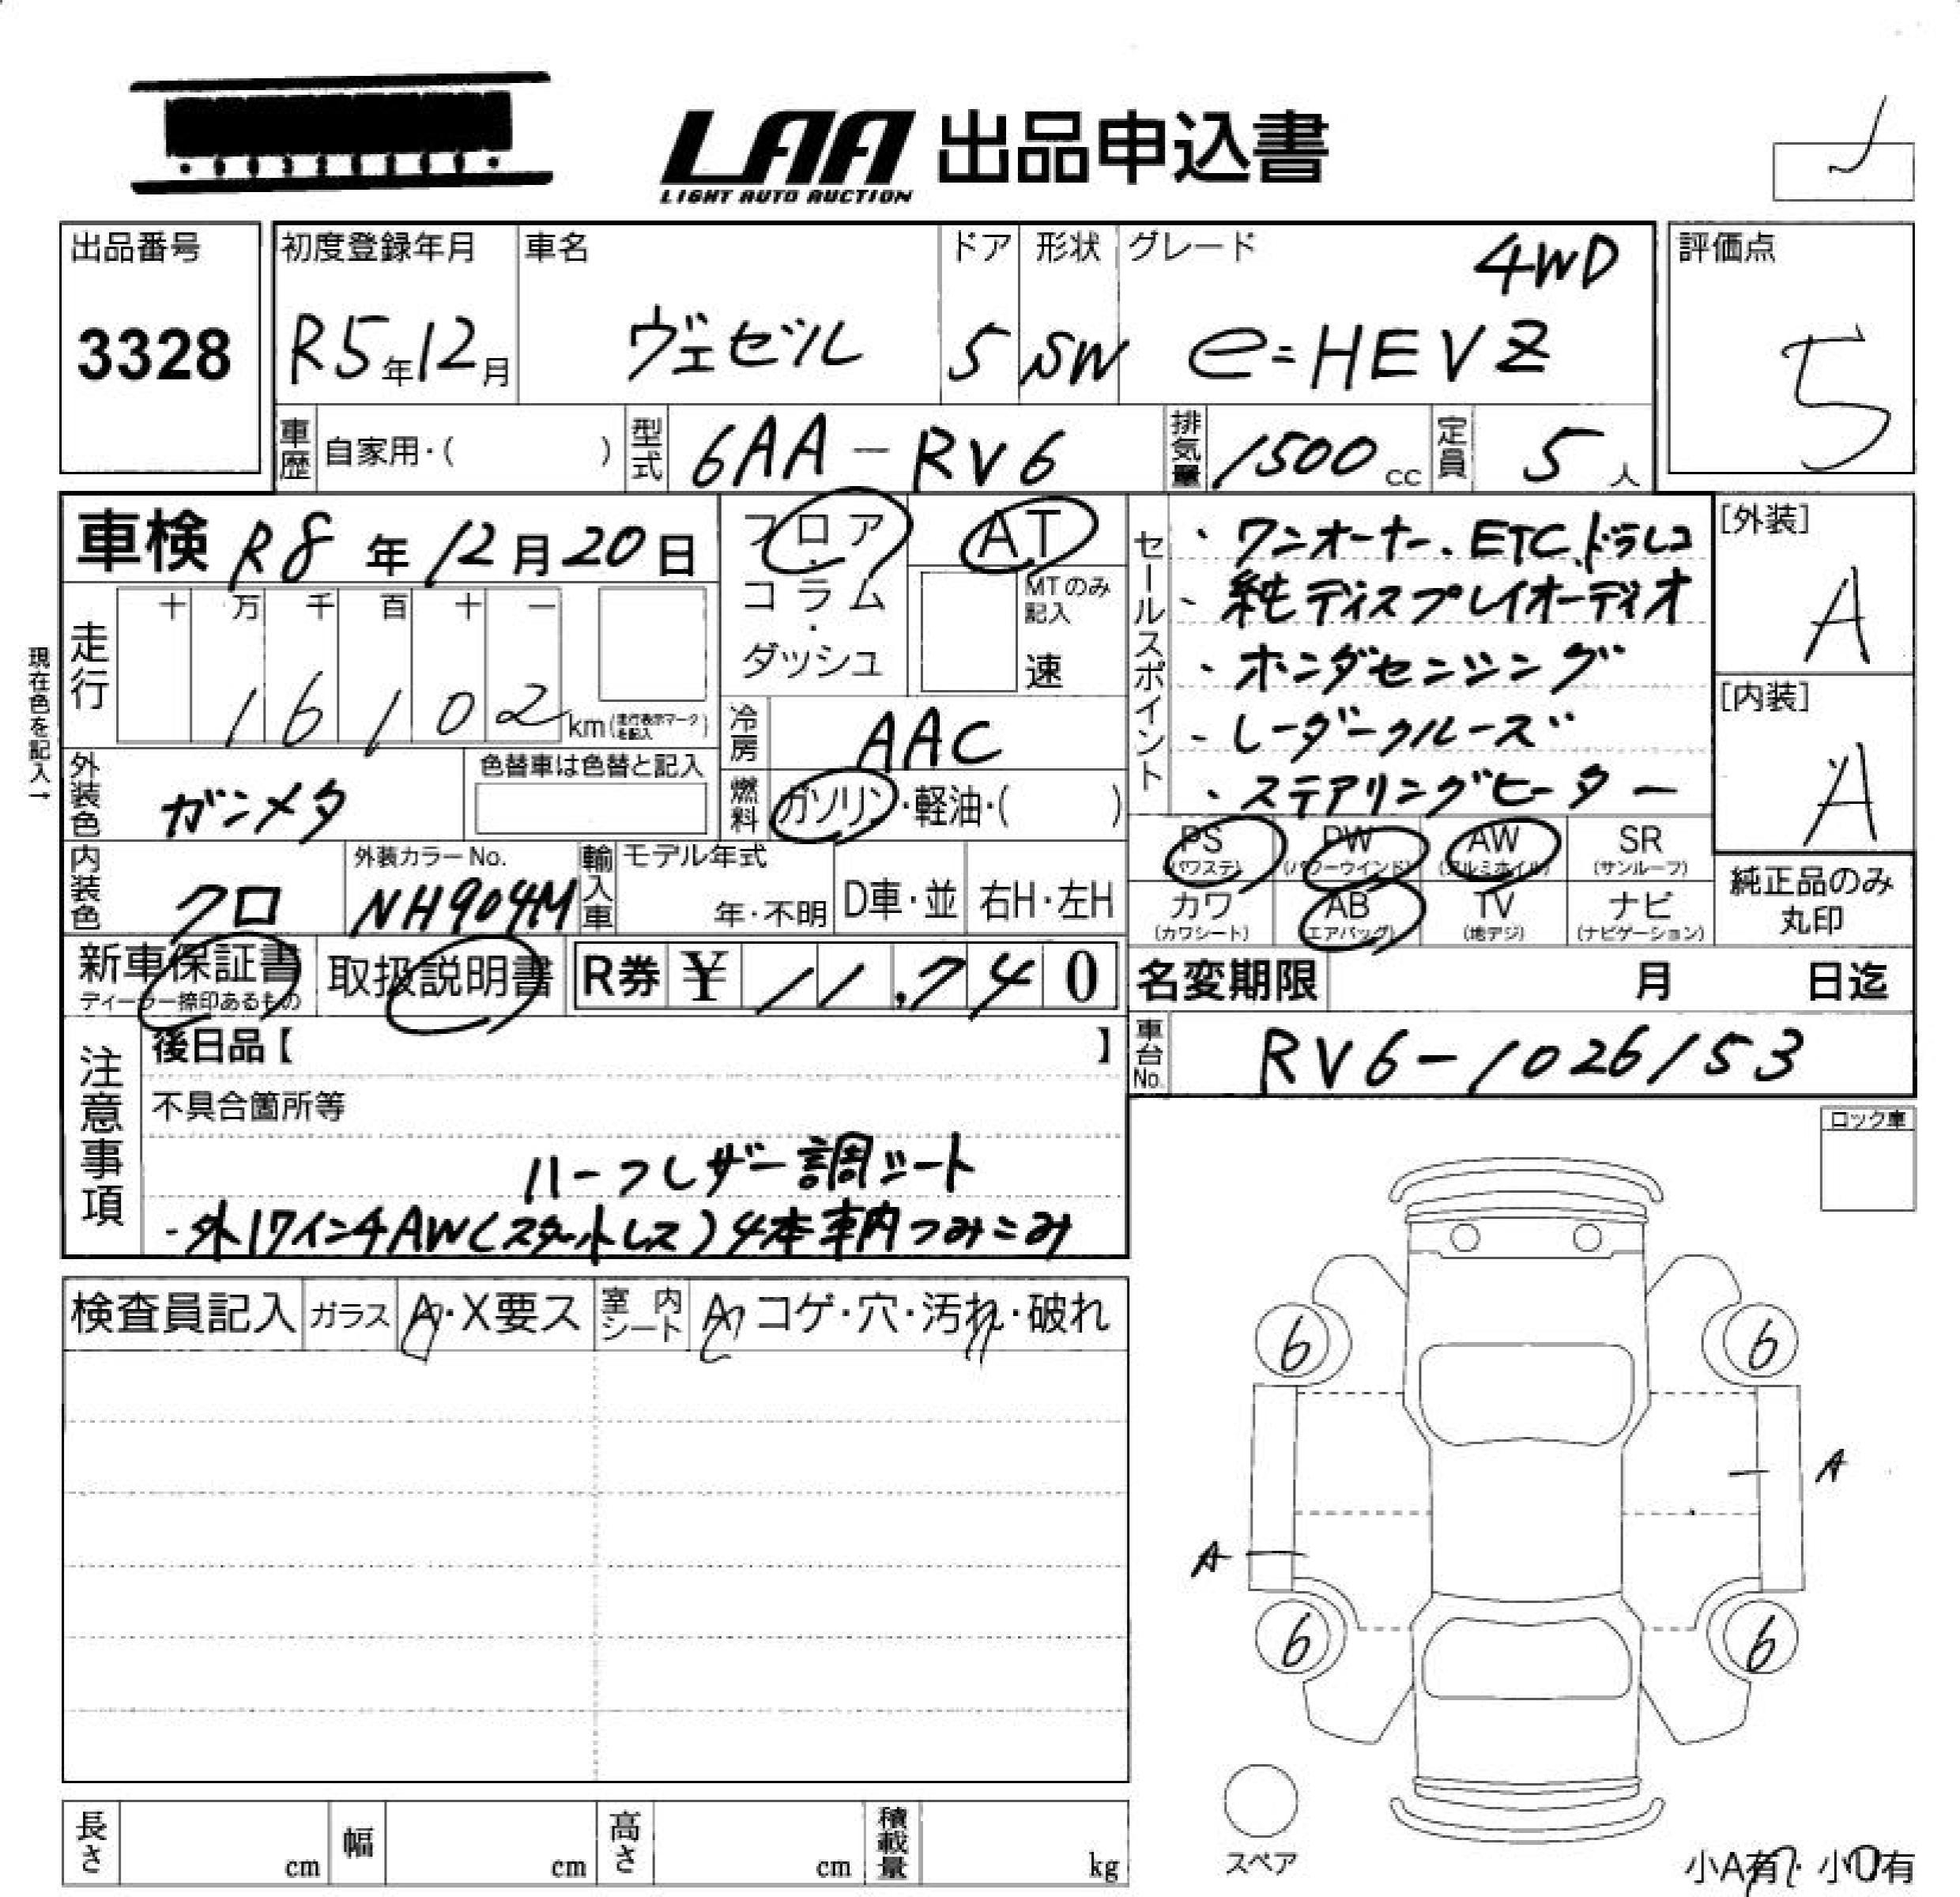 LAA 出品申込書
LIGHT AUTO AUCTION
出品番号
3328
初度登録年月
R5年12月
車名
ヴェゼル
ドア
5
形状
SW
グレード
4WD
e=HEV Z
評価点
5
車歴 自家用・( )
型式 6AA-RV6
排気量 1500 cc
定員 5 人
車検 R8年12月20日
現在色を記入→
走行
十 万 千 百 十 一
16102 km (走行表示マークを記入)
フロア・コラム・ダッシュ
AT
MTのみ記入
速
冷房 AAC
燃料 ガソリン・軽油・( )
外装色 ガンメタ
色替車は色替と記入
内装色 クロ
外装カラーNo.
NH904M
輸入車 モデル年式
年・不明
D車・並
右H・左H
セールスポイント
・ワンオーナー、ETC、ドラレコ
・純ディスプレイオーディオ
・ホンダセンシング
・レーダークルーズ
・ステアリングヒーター
[外装]
A
[内装]
A
PS (パワステ)
PW (パワーウインド)
AW (アルミホイル)
SR (サンルーフ)
カワ (カワシート)
AB (エアバッグ)
TV (地デジ)
ナビ (ナビゲーション)
純正品のみ丸印
新車保証書
ディーラー捺印あるもの
取扱説明書
R券 ¥ 11,740
名変期限 月 日迄
車台No. RV6-1026153
注意事項
後日品【 】
不具合箇所等
ハーフレザー調シート
・外17インチAW(スタットレス)4本車内つみこみ
ロック車
検査員記入
ガラス A・X要ス
室内シート A コゲ・穴・汚れ・破れ
6 6
A
A
6 6
スペア
長さ cm
幅 cm
高さ cm
積載量 kg
小A有・小U有